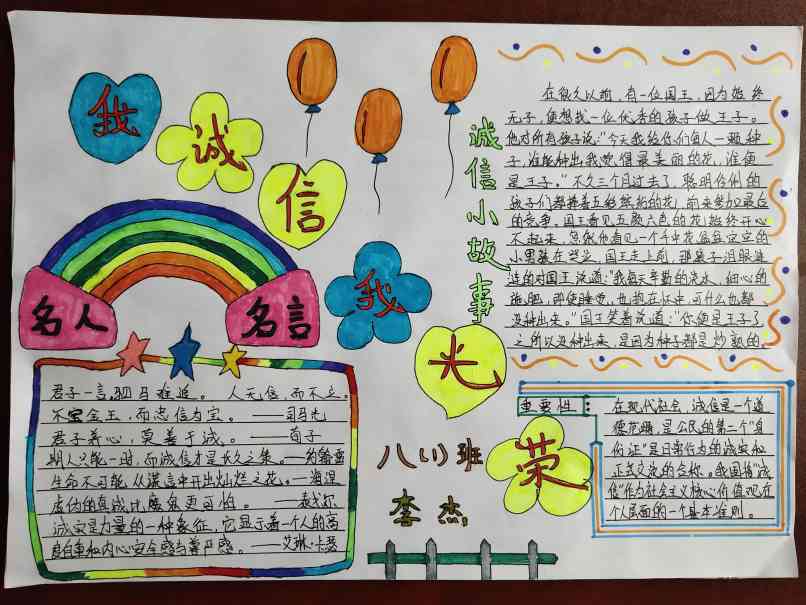 我
诚
信
我
光
荣
名人
名言
君子一言,驷马难追。 人无信,而不立。
不宝金玉,而忠信为宝。 ——司马光
君子养心,莫善于诚。——荀子
期人只能一时,而诚信才是长久之策。——约翰雷
生命不可能从谎言中开出灿烂之花。——海涅
虚伪的真诚,比魔鬼更可怕。——泰戈尔
诚实是力量的一种象征,它显示着一个人的高
度自重和内心安全感与尊严感。——艾琳·卡瑟
诚信小故事
在很久以前,有一位国王,因为始终
无子,便想找一位优秀的孩子做王子。
他对所有孩子说:“今天我给你们每人一颗种
子,谁能种出我觉得最美丽的花,谁便
是王子。”不久三个月过去了,聪明伶俐的
孩子们都捧着五彩缤纷的花,前来参加最后
的竞争。国王看见五颜六色的花始终开心
不起来,忽然他看见一个手中花盆是空的
小男孩在哭泣,国王走上前,那孩子泪眼涟
涟的对国王说道:“我每天辛勤的浇水,细心的
施肥,即使睡觉,也抱在怀中,可什么也都
没种出来。”国王笑着说道:“你便是王子了
之所以没种出来,是因为种子都是炒熟的。
重要性:
在现代社会,诚信是一个道
德范畴,是公民的第二个“身
份证”是日常行为的诚实和
正式交流的合称。我国将“诚
信”作为社会主义核心价值观在
个人层面的一个基本准则。
八(1)班
李杰